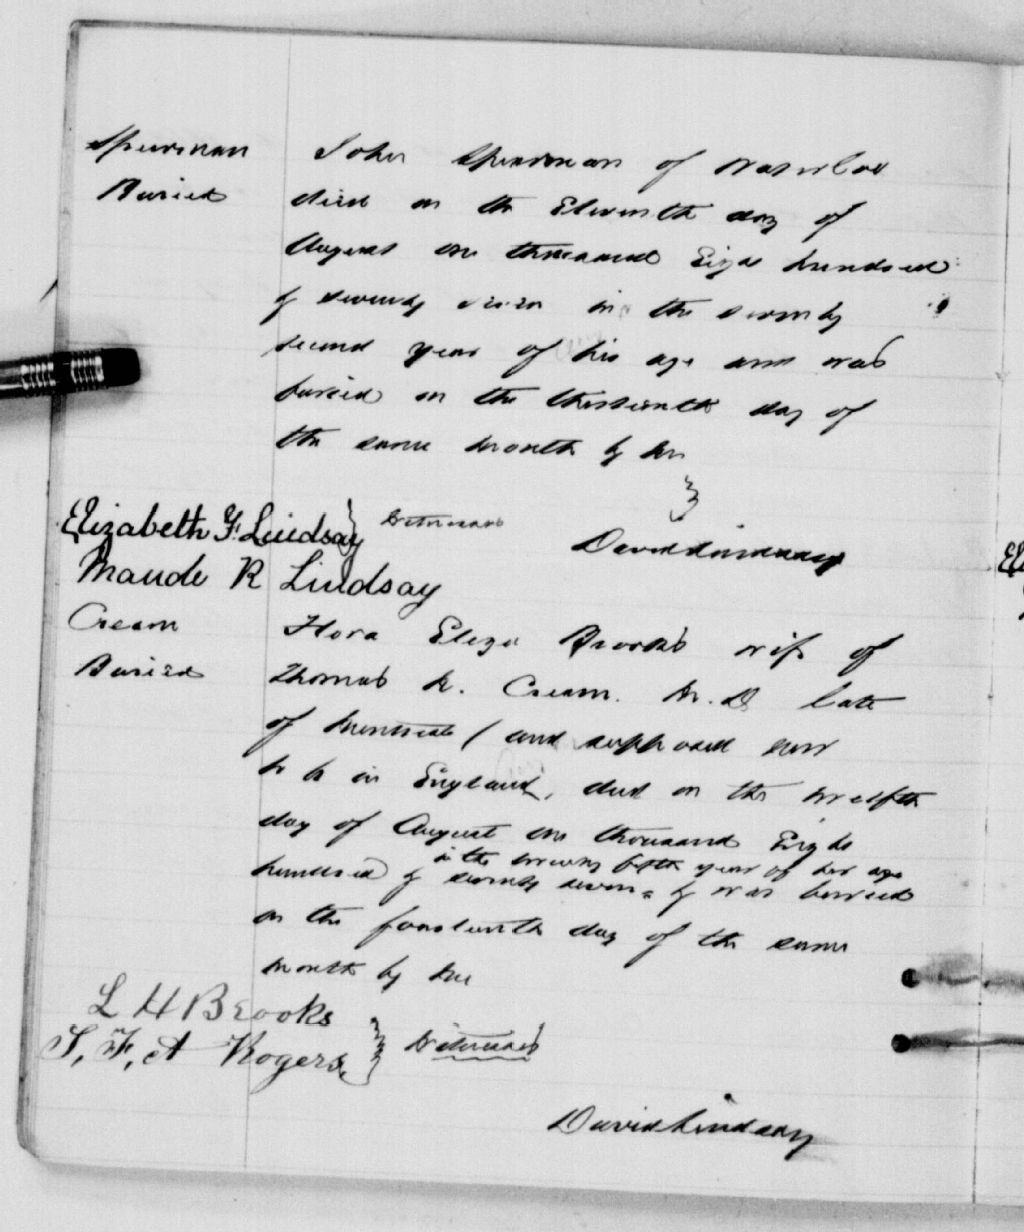 Spearman
Buried
John Spearman of Waterloo
died on the Eleventh day of
August one thousand Eight hundred
& seventy seven in the seventy
second year of his age and was
buried on the thirteenth day of
the same month by me
Elizabeth F. Lindsay } Witnesses
David Lindsay
Maude R Lindsay
Cream
Buried
Flora Eliza Brooks wife of
Thomas N. Cream. M. D late
of Montreal ( and supposed now
to be in England, died on the twelfth
day of August one thousand Eight
in the twenty fifth year of her age
hundred & seventy seven & was buried
on the fourteenth day of the same
month by me
L H Brooks
T. F. A Rogers } Witnesses
David Lindsay